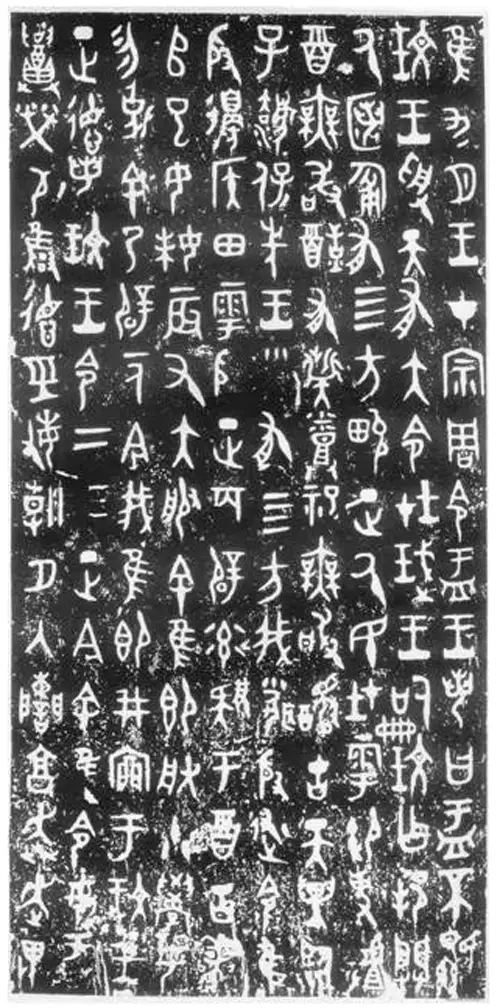 隹九月王才宗周令盂王若曰盂不顯
玟王受天有大令在珷王嗣玟乍邦闢
厥匿匍有四方畯正厥民在雩御事𠭯
酉無敢酖有祡烝祀無敢醻古天異臨
子法保先王有四方我聞殷述令隹
殷邊侯田雩殷正百辟率肄于酉古喪
師已女妹辰又大服余隹即朕小學女
勿剋余乃辟一人今我隹即井㐭于玟王
正德若玟王令二三正今余隹令女盂
召榮敬雍德巠敏朝夕入諫享奔走畏